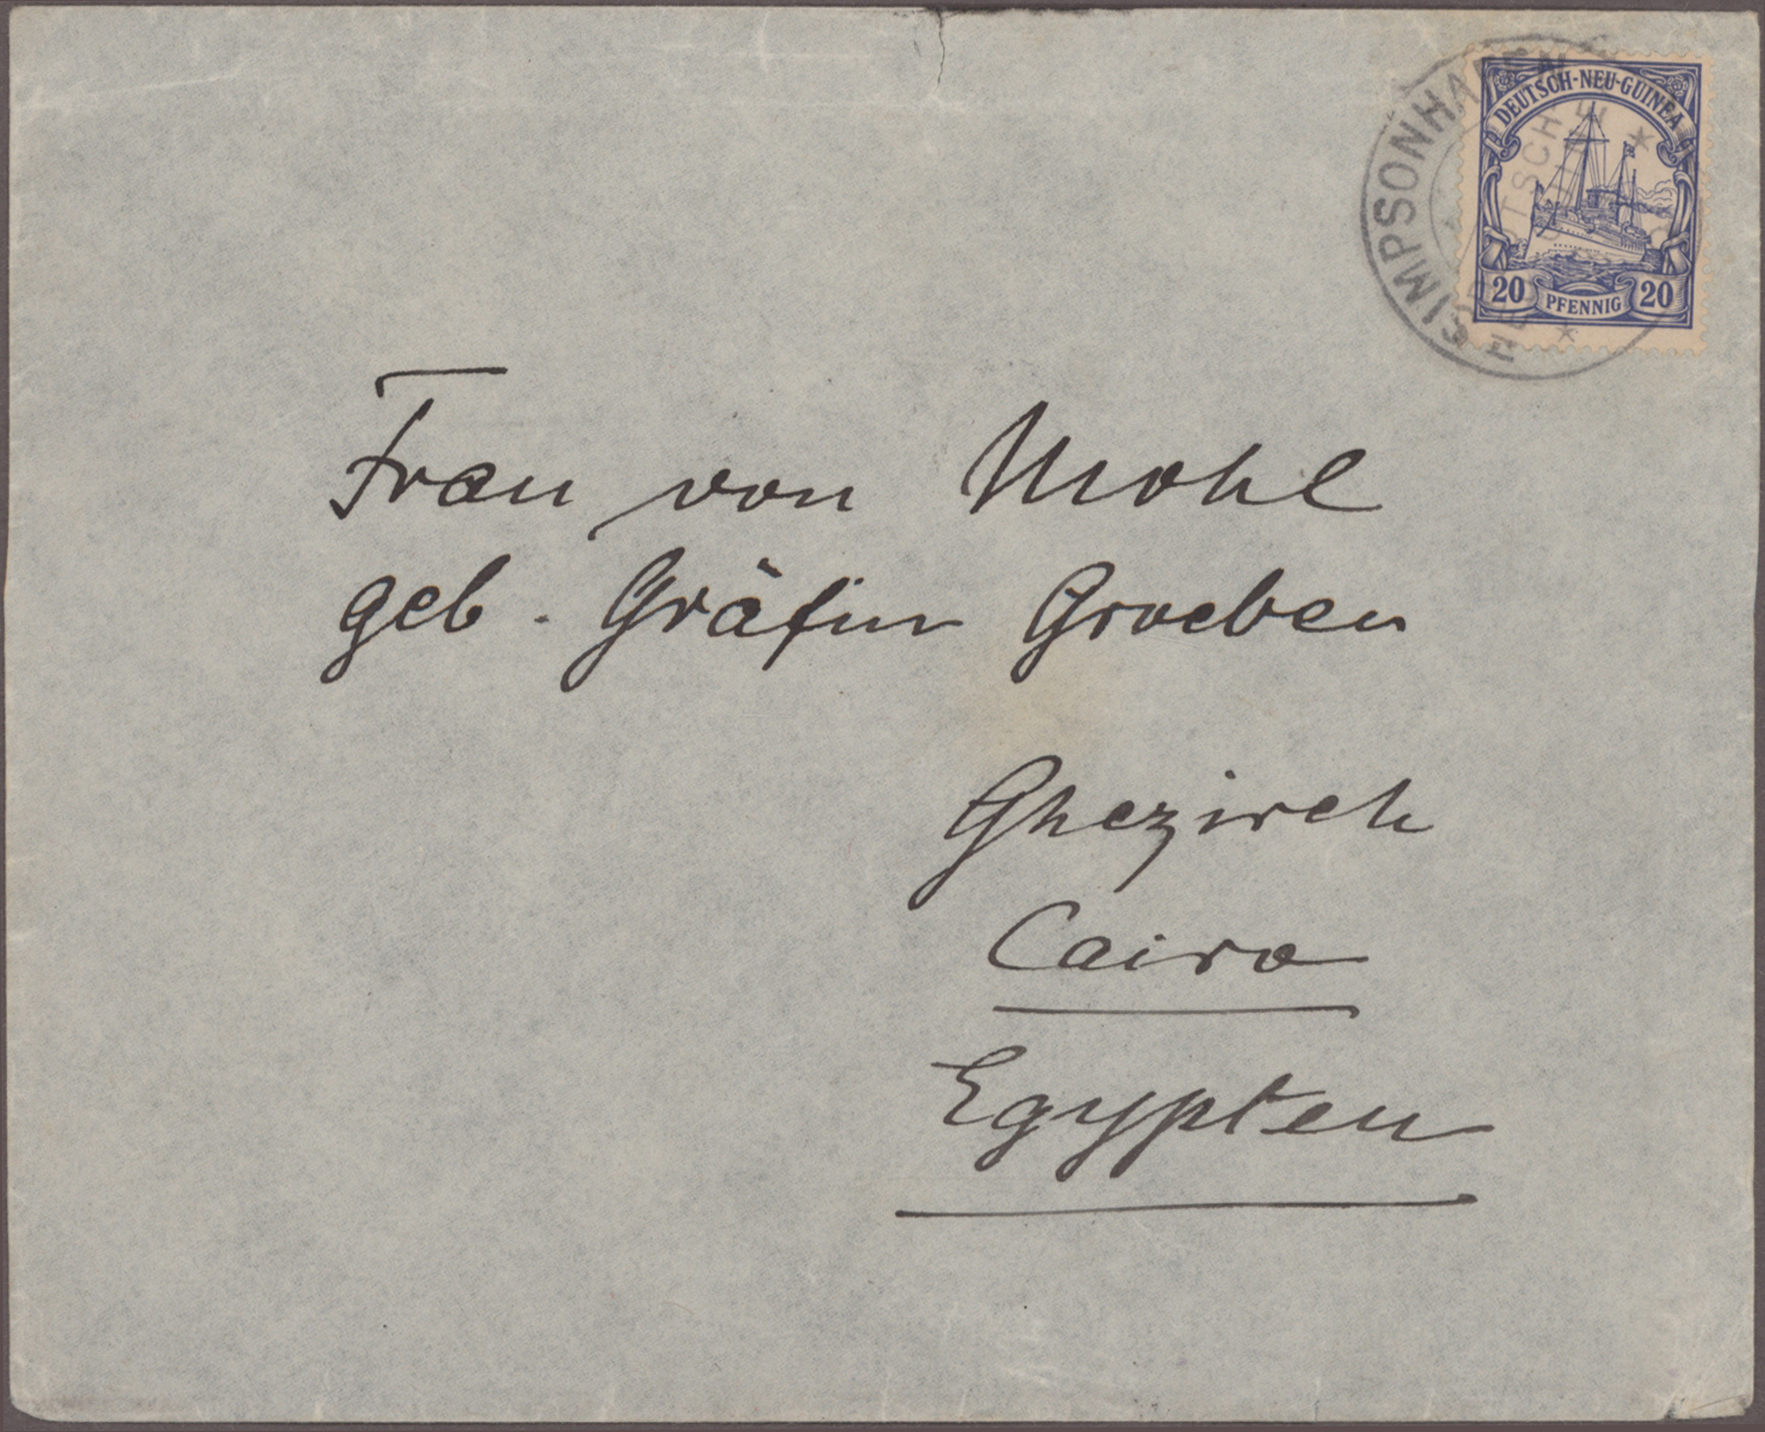 SIMPSONHAFEN
DEUTSCH-NEU-GUINEA
20 PFENNIG 20
Frau von Mohl
geb. Gräfin Groeben
Ghezireh
Cairo
Egypten